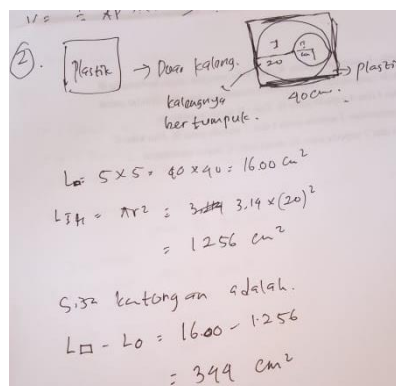 2. Plastik → Dasar kaleng.
20
kalengnya
bertumpuk.
→ plasti
40 cm.
L□ = 5 x 5 = 40 x 40 = 1600 cm²
= πr² = 3.14 x (20)²
= 1256 cm²
Sisa kantongan adalah.
L□ - LO = 1600 - 1.256
= 344 cm²